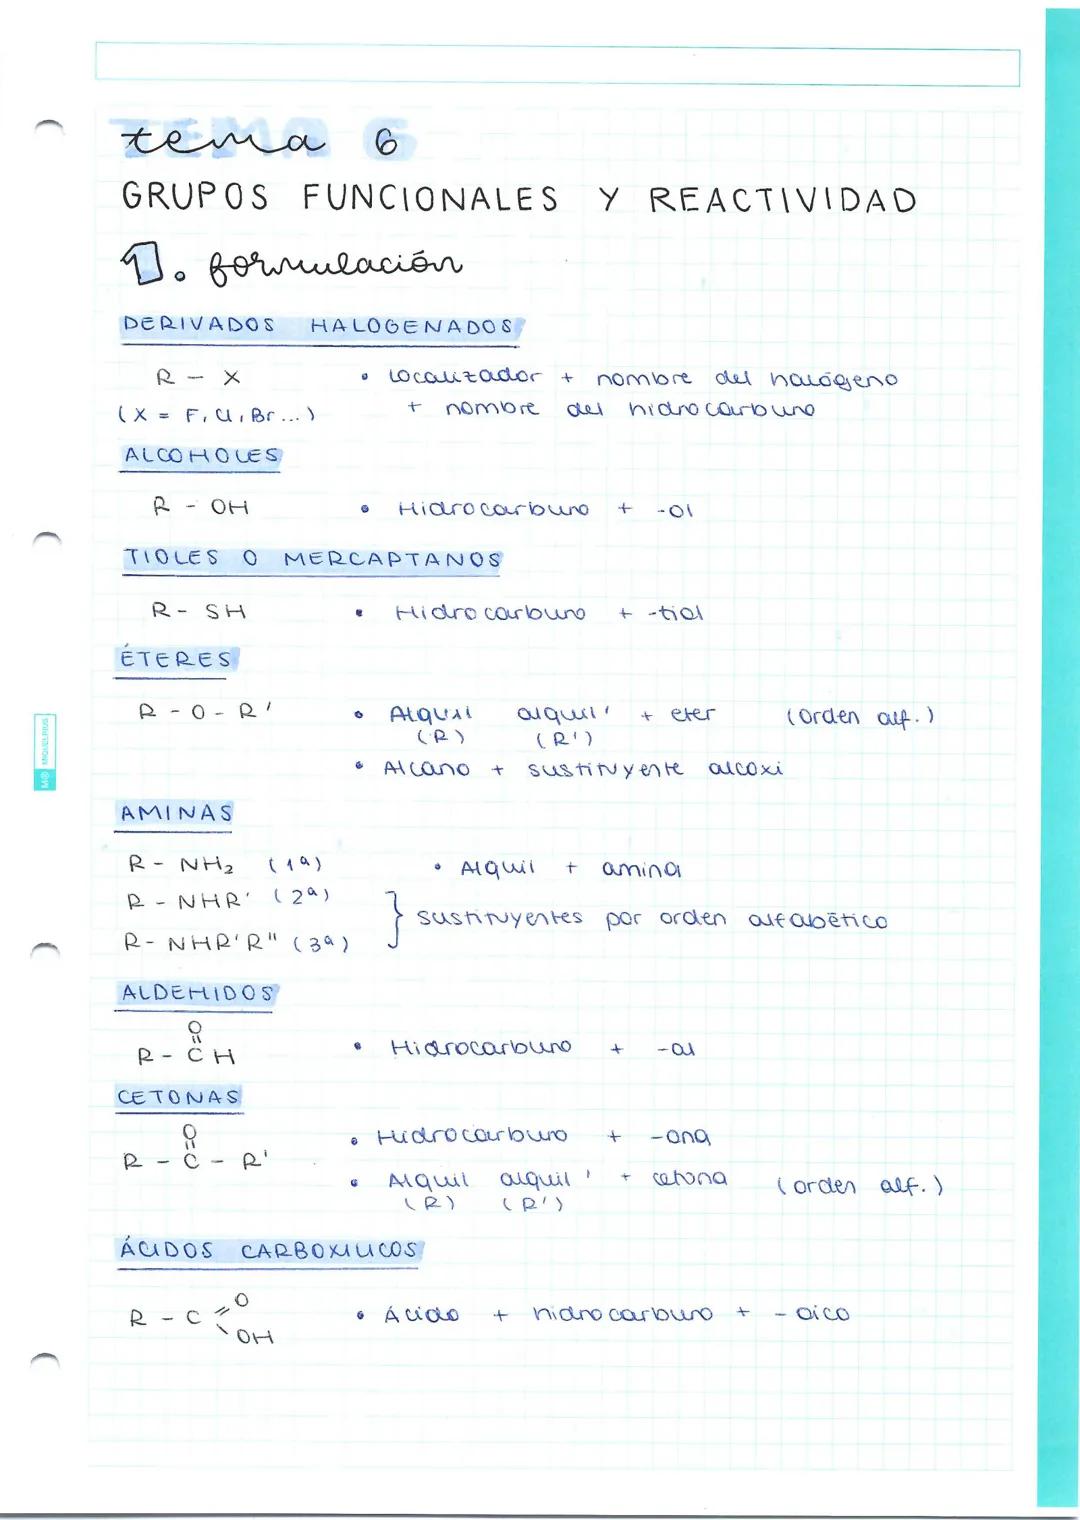 TEMA 6
tema 6
GRUPOS FUNCIONALES Y REACTIVIDAD
1. formulación
DERIVADOS HALOGENADOS
R - X • Localizador + nombre del halógeno
(X = F, Cl, Br...) + nombre del hidrocarburo
ALCOHOLES
R - OH • Hidrocarburo + -ol
TIOLES O MERCAPTANOS
R - SH • Hidrocarburo + -tiol
ÉTERES
R - O - R' • Alquil alquil' + eter (orden alf.)
(R) (R')
• Alcano + sustituyente alcoxi
AMINAS
R - NH₂ (1ª) • Alquil + amina
R - NHR' (2ª)
} sustituyentes por orden alfabético
R - NHR'R" (3ª)
ALDEHIDOS
O
R - C H • Hidrocarburo + -al
CETONAS
O • Hidrocarburo + -ona
R - C - R'
• Alquil alquil' + cetona (orden alf.)
(R) (R')
ÁCIDOS CARBOXILICOS
O
R - C • Ácido + hidrocarburo + -oico
OH
M® MIQUELRIUS